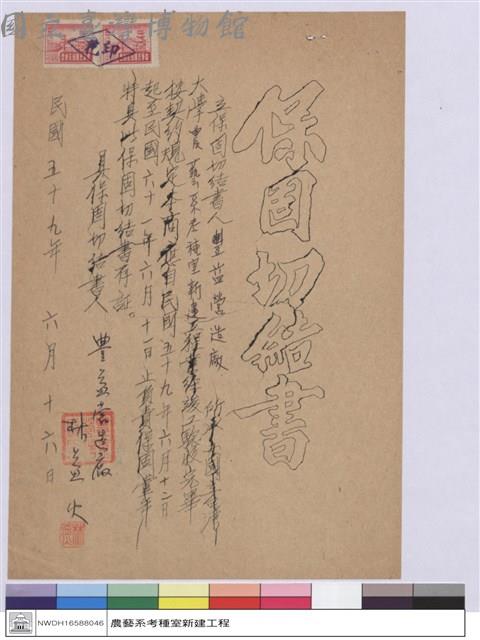 國立臺灣博物館
印花
保固切結書
立保固切結書人豐益營造廠 所承包國立台灣
大學農藝系考種室新建工程業經竣工驗收完畢
按契約規定本商應自民國五十九年六月十二日
起至民國六十一年六月十一日止負責保固貳年
特具此保固切結書存証。
具保固切結書人 豐益營造廠
林益火
民國五十九年 六月 十六日
NWDH16588046
農藝系考種室新建工程